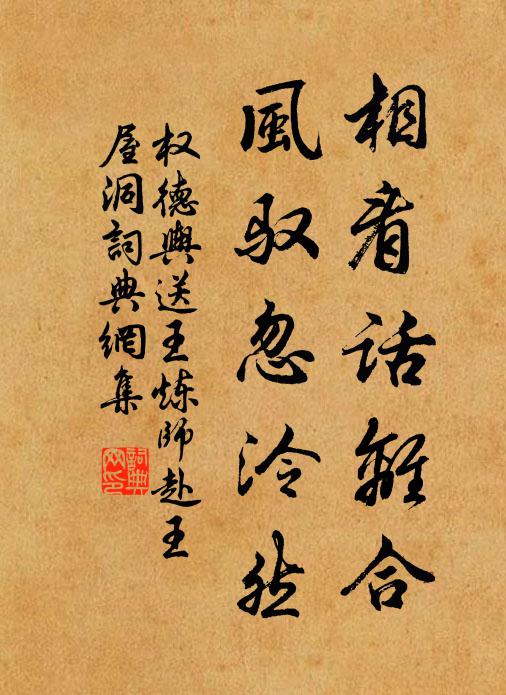 相看話離合
風驭忽泠然
权德輿送王炼師赴王
屋洞詞典網集
詞典
网印